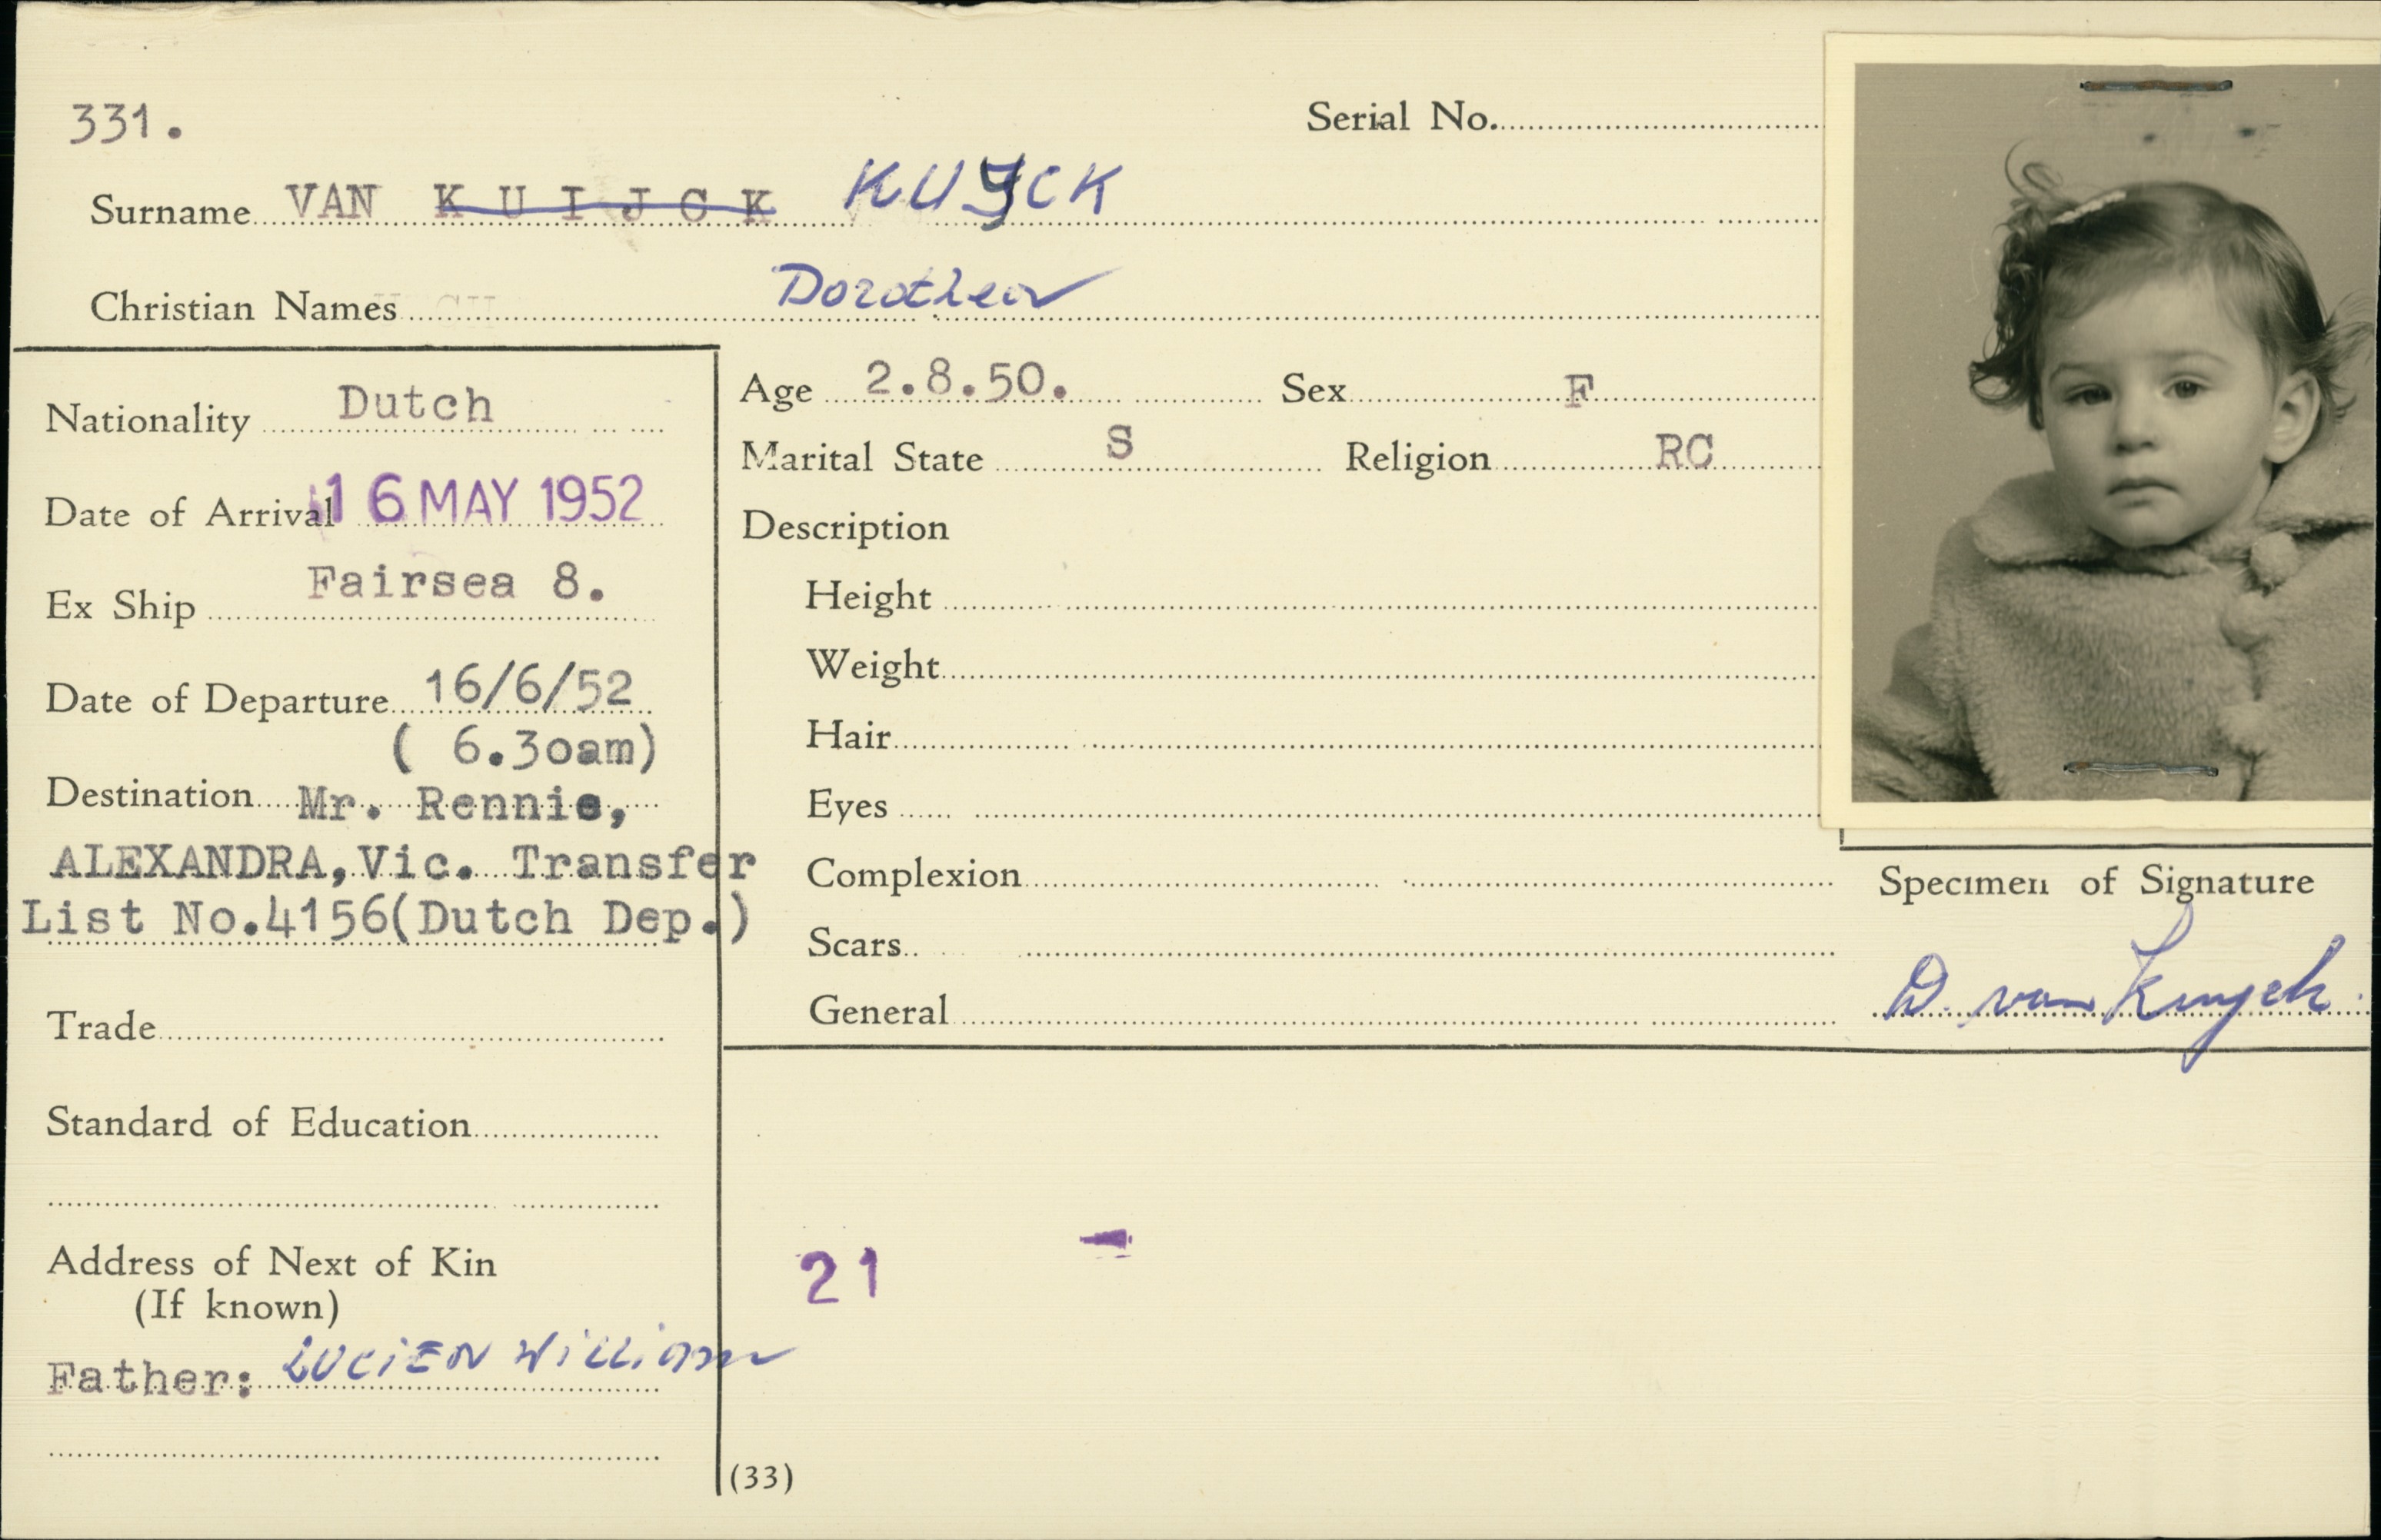 331.
Serial No.
Surname VAN K U I J C K KUYCK
Christian Names Dorothea
Nationality Dutch
Date of Arrival 16 MAY 1952
Ex Ship Fairsea 8.
Date of Departure 16/6/52
( 6.3oam)
Destination Mr. Rennie,
ALEXANDRA,Vic. Transfer
List No.4156(Dutch Dep.)
Trade
Standard of Education
Address of Next of Kin
(If known)
Father: LUCIEN William
Age 2.8.50. Sex F
Marital State S Religion RC
Description
Height
Weight
Hair
Eyes
Complexion
Scars
General
Specimen of Signature
D. van Kuyck.
21
(33)